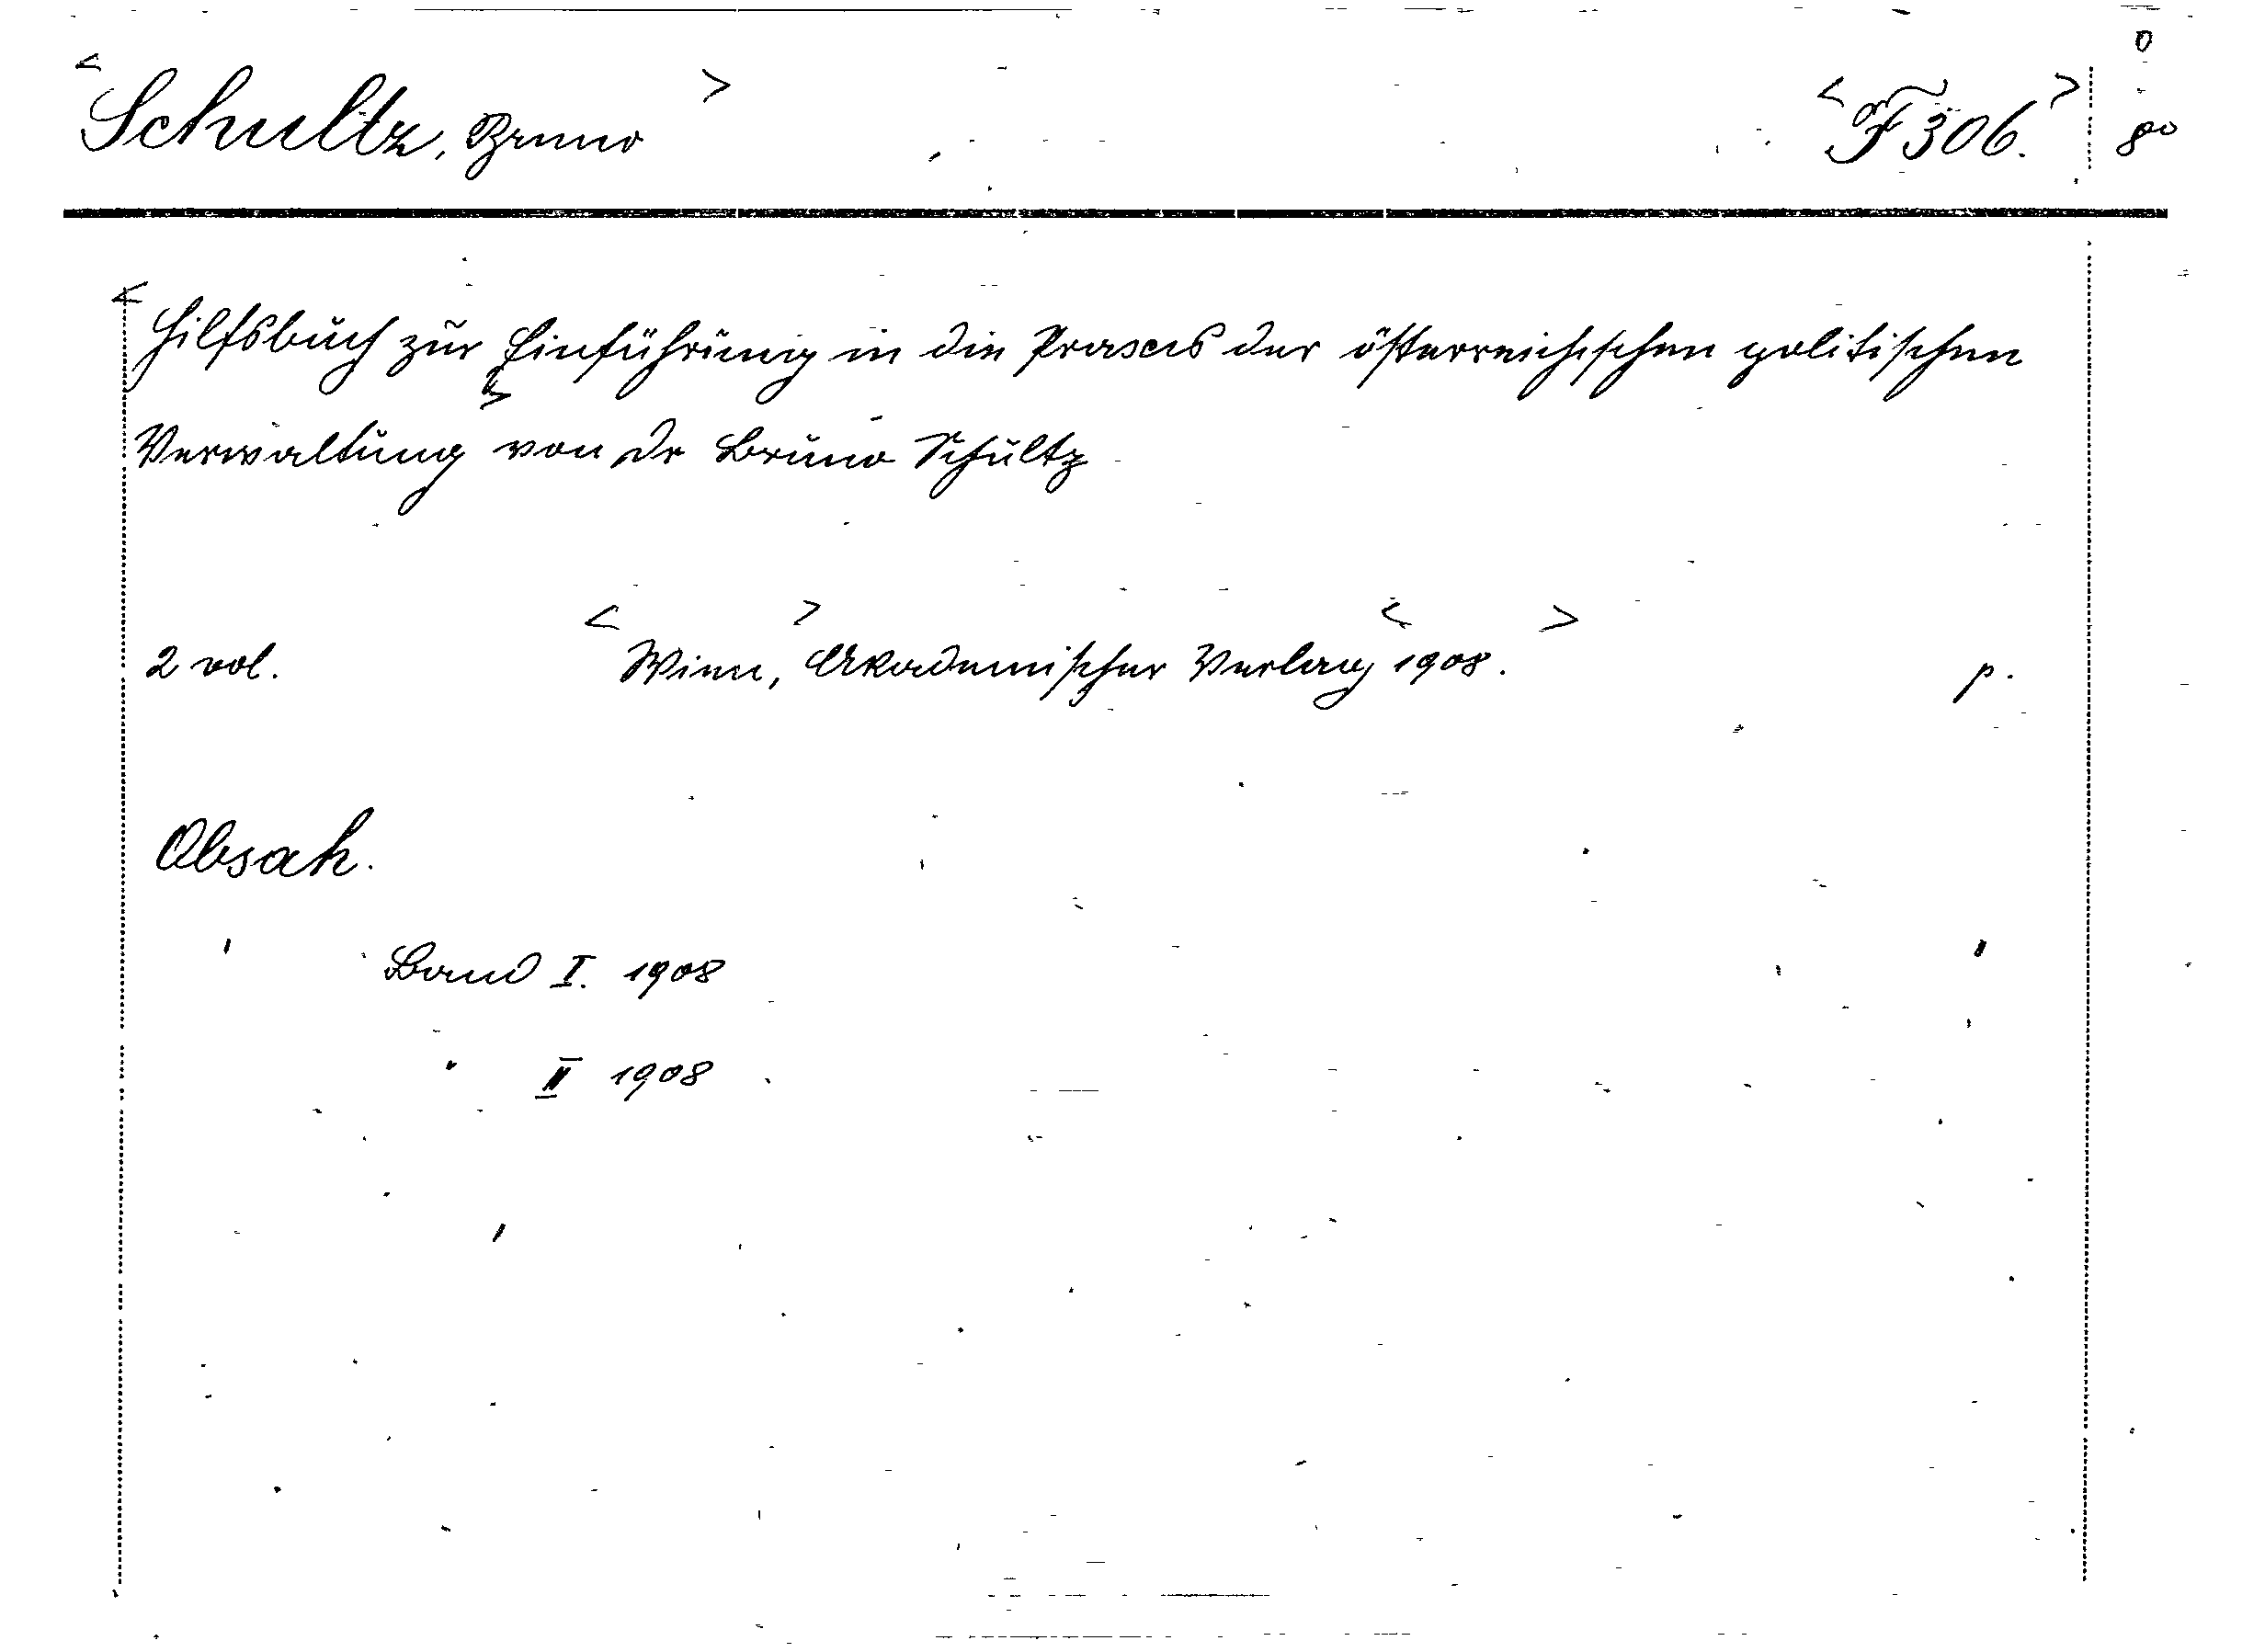 <Schultz, Bruno> <F 306.> 8°
<Hilfsbuch zur Einführung in die Praxis der österreichischen politischen
Verwaltung> von Dr Bruno Schultz
2 vol. <Wien,> Akademischer Verlag <1908.> p.
Obsah.
Band I. 1908
" II 1908